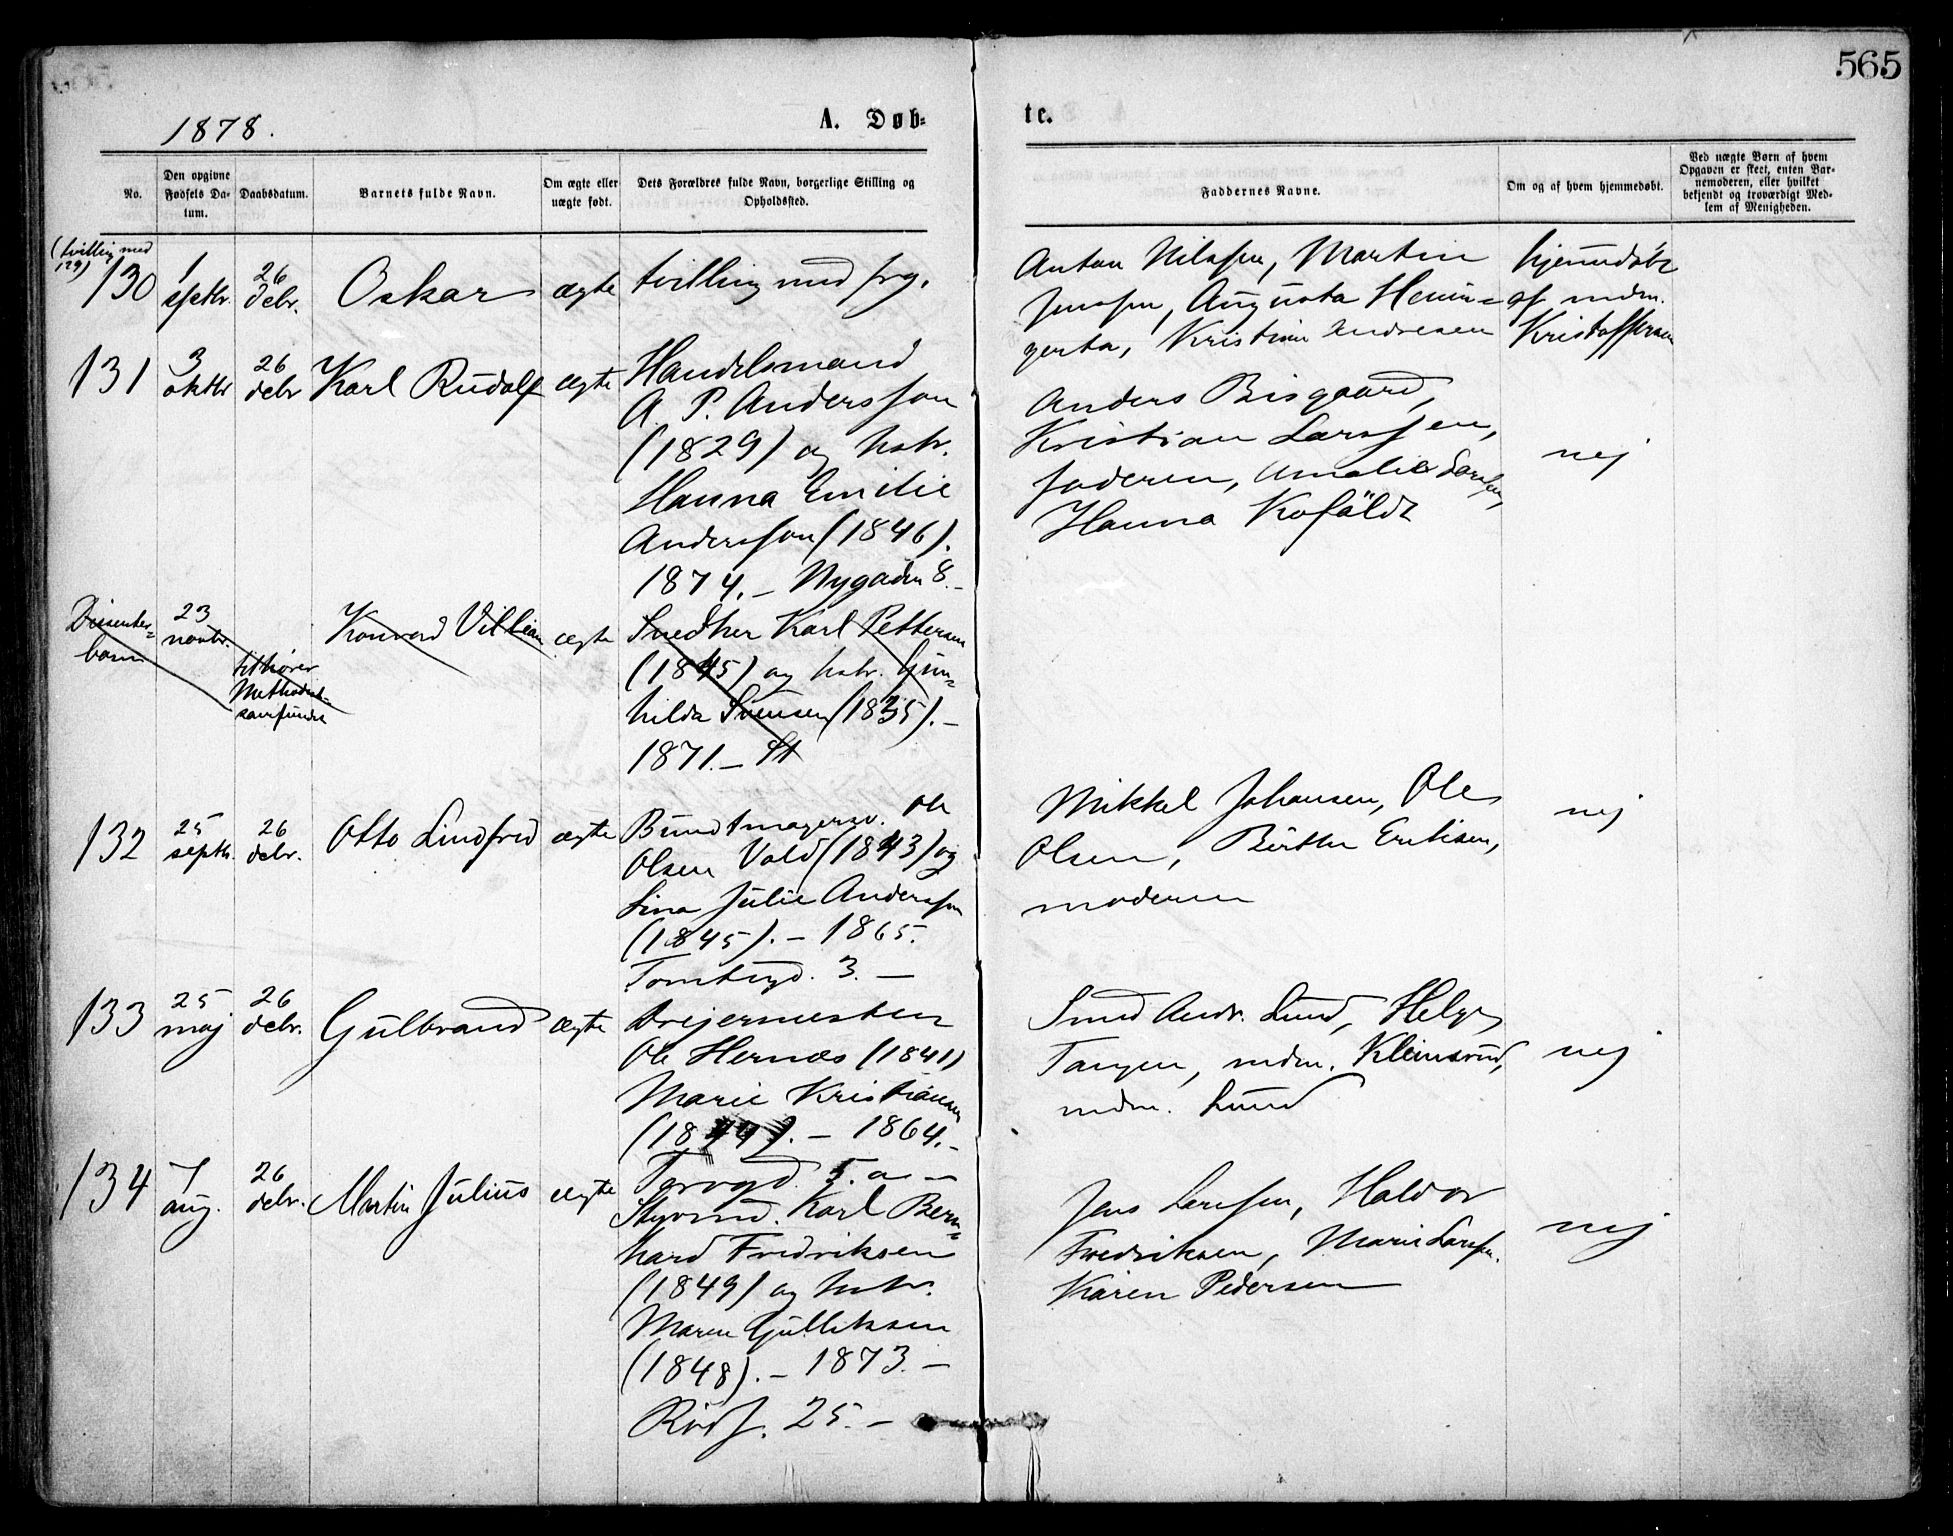 565
1878.
A. Døb=
te.
No.
Den opgivne Fødsels Da-
tum.
Daabsdatum.
Barnets fulde Navn.
Om ægte eller
uægte født.
Dets Forældres fulde Navn, borgerlige Stilling og
Opholdssted.
Faddernes Navne.
Om og af hvem hjemmedøbt.
Ved uægte Børn af hvem
Opgaven er skeet, enten Bar-
nemoderen, eller hvilket
bekjendt og troværdigt Med-
lem af Menigheden.
(tvilling med
129)
130
1
septbr.
26
debr.
Oskar
ægte
tvilling med frg.
Anton Nilssen, Martin
Jenssen, Augusta Hennin=
gerta, Kristian Andresen
hjemmedøbt
af mdm.
Kristoffersen
131
3
oktbr
26
debr
Karl Rudolf
ægte
Handelsmand
A. P. Andersson
(1829) og hstr.
Hanna Emilie
Andersson (1846).
1874. – Nygaden 8. –
Anders Bisgaard,
Kristian Larssen,
faderen, Amalie Larssen,
Hanna Kofäldt
nej
Dissenter=
barn
23
novbr.
tilhører
Methodist=
samfundet
Konrad Villiam
ægte
Snedker Karl Pettersen
(1845) og hstr. Gun=
hilda Svensen (1835). –
1871. – St
132
25
septbr.
26
debr.
Otto Lindfrid
ægte
Bundtmagersv. Ole
Olsen Vold (1843) og
Lina Julie Andersson
(1845). – 1865.
Tomtegd. 3. –
Mikkel Johansen, Ole
Olsen, Berthe Eriksen,
moderen
nej
133
25
maj
26
debr.
Gulbrand
ægte
Drejermester
Ole Hernæs (1841)
Marie Kristiansen
– 1864. –
Torvgd. 5. a –
Smed Andr. Lund, Helge
Tangen, mdm. Kleinsrud,
mdm. Lund
nej
134
7
aug.
26
debr.
Martin Julius
ægte
Styrmd. Karl Bern=
hard Fredriksen
(1849) og hstr.
Maren Gulliksen
(1848). – 1873. –
Rödf. 25. –
Jens Larssen, Haldor
Fredriksen, Marie Larssen.
Karen Pedersen
nej